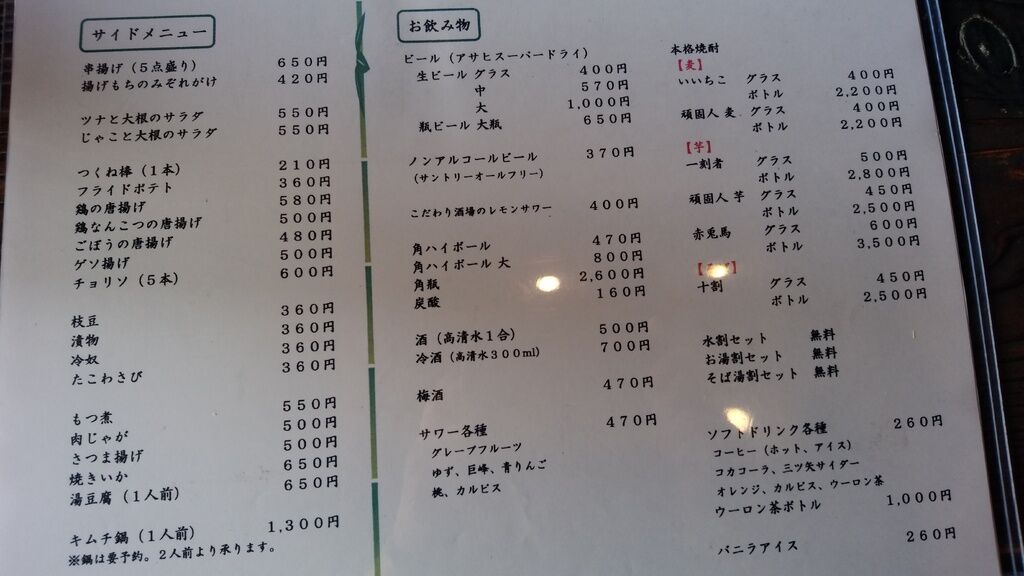 サイドメニュー
串揚げ（5点盛り） 650円
揚げもちのみぞれがけ 420円
ツナと大根のサラダ 550円
じゃこと大根のサラダ 550円
つくね棒（1本） 210円
フライドポテト 360円
鶏の唐揚げ 580円
鶏なんこつの唐揚げ 500円
ごぼうの唐揚げ 480円
ゲソ揚げ 500円
チョリソ（5本） 600円
枝豆 360円
漬物 360円
冷奴 360円
たこわさび 360円
もつ煮 550円
肉じゃが 500円
さつま揚げ 500円
焼きいか 650円
湯豆腐（1人前） 650円
キムチ鍋（1人前） 1,300円
※鍋は要予約。2人前より承ります。
お飲み物
ビール（アサヒスーパードライ）
生ビール グラス 400円
中 570円
大 1,000円
瓶ビール 大瓶 650円
ノンアルコールビール 370円
（サントリーオールフリー）
こだわり酒場のレモンサワー 400円
角ハイボール 470円
角ハイボール 大 800円
角瓶 2,600円
炭酸 160円
酒（高清水1合） 500円
冷酒（高清水300ml） 700円
梅酒 470円
サワー各種 470円
グレープフルーツ
ゆず、巨峰、青りんご
桃、カルピス
本格焼酎
【麦】
いいちこ グラス 400円
ボトル 2,200円
頑固人 麦 グラス 400円
ボトル 2,200円
【芋】
一刻者 グラス 500円
ボトル 2,800円
頑固人 芋 グラス 450円
ボトル 2,500円
赤兎馬 グラス 600円
ボトル 3,500円
十割 グラス 450円
ボトル 2,500円
水割セット 無料
お湯割セット 無料
そば湯割セット 無料
ソフトドリンク各種 260円
コーヒー（ホット、アイス）
コカコーラ、三ツ矢サイダー
オレンジ、カルピス、ウーロン茶
ウーロン茶ボトル 1,000円
バニラアイス 260円